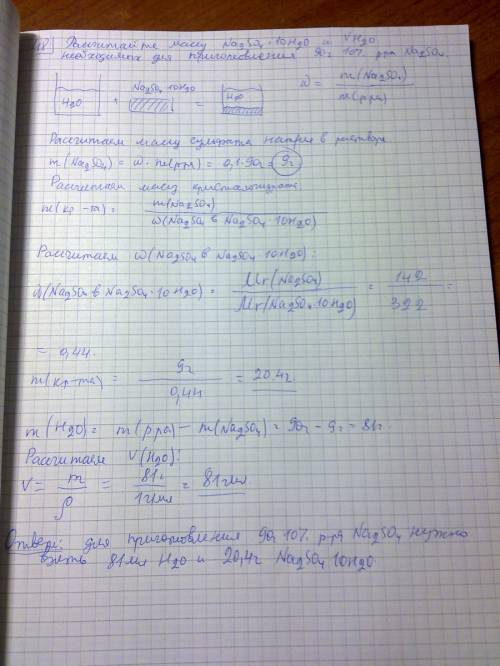 Рассчитайте массу Na₂SO₄·10H₂O и VH₂O
необходимых для приготовления 90г 10% р-ра Na₂SO₄.
H₂O + Na₂SO₄ 10H₂O =
ω = m(Na₂SO₄) / m(р-ра)
Рассчитаем массу сульфата натрия в растворе
m(Na₂SO₄) = ω · m(р-ра) = 0,1·90г = 9г
Рассчитаем массу кристаллогидрата
m(кр-та) = m(Na₂SO₄) / ω(Na₂SO₄ в Na₂SO₄·10H₂O)
Рассчитаем ω(Na₂SO₄ в Na₂SO₄ 10H₂O):
ω(Na₂SO₄ в Na₂SO₄·10H₂O) = Mr(Na₂SO₄) / Mr(Na₂SO₄ 10H₂O) = 142 / 322 =
= 0,44.
m(кр-та) = 9г / 0,44 = 20,4г.
m(H₂O) = m(р-ра) – m(Na₂SO₄) = 90г – 9г = 81г.
Рассчитаем V(H₂O):
V = m / ρ = 81г / 1г/мл = 81мл
Ответ: для приготовления 90г 10% р-ра Na₂SO₄ нужно
взять 81мл H₂O и 20,4г Na₂SO₄ 10H₂O.